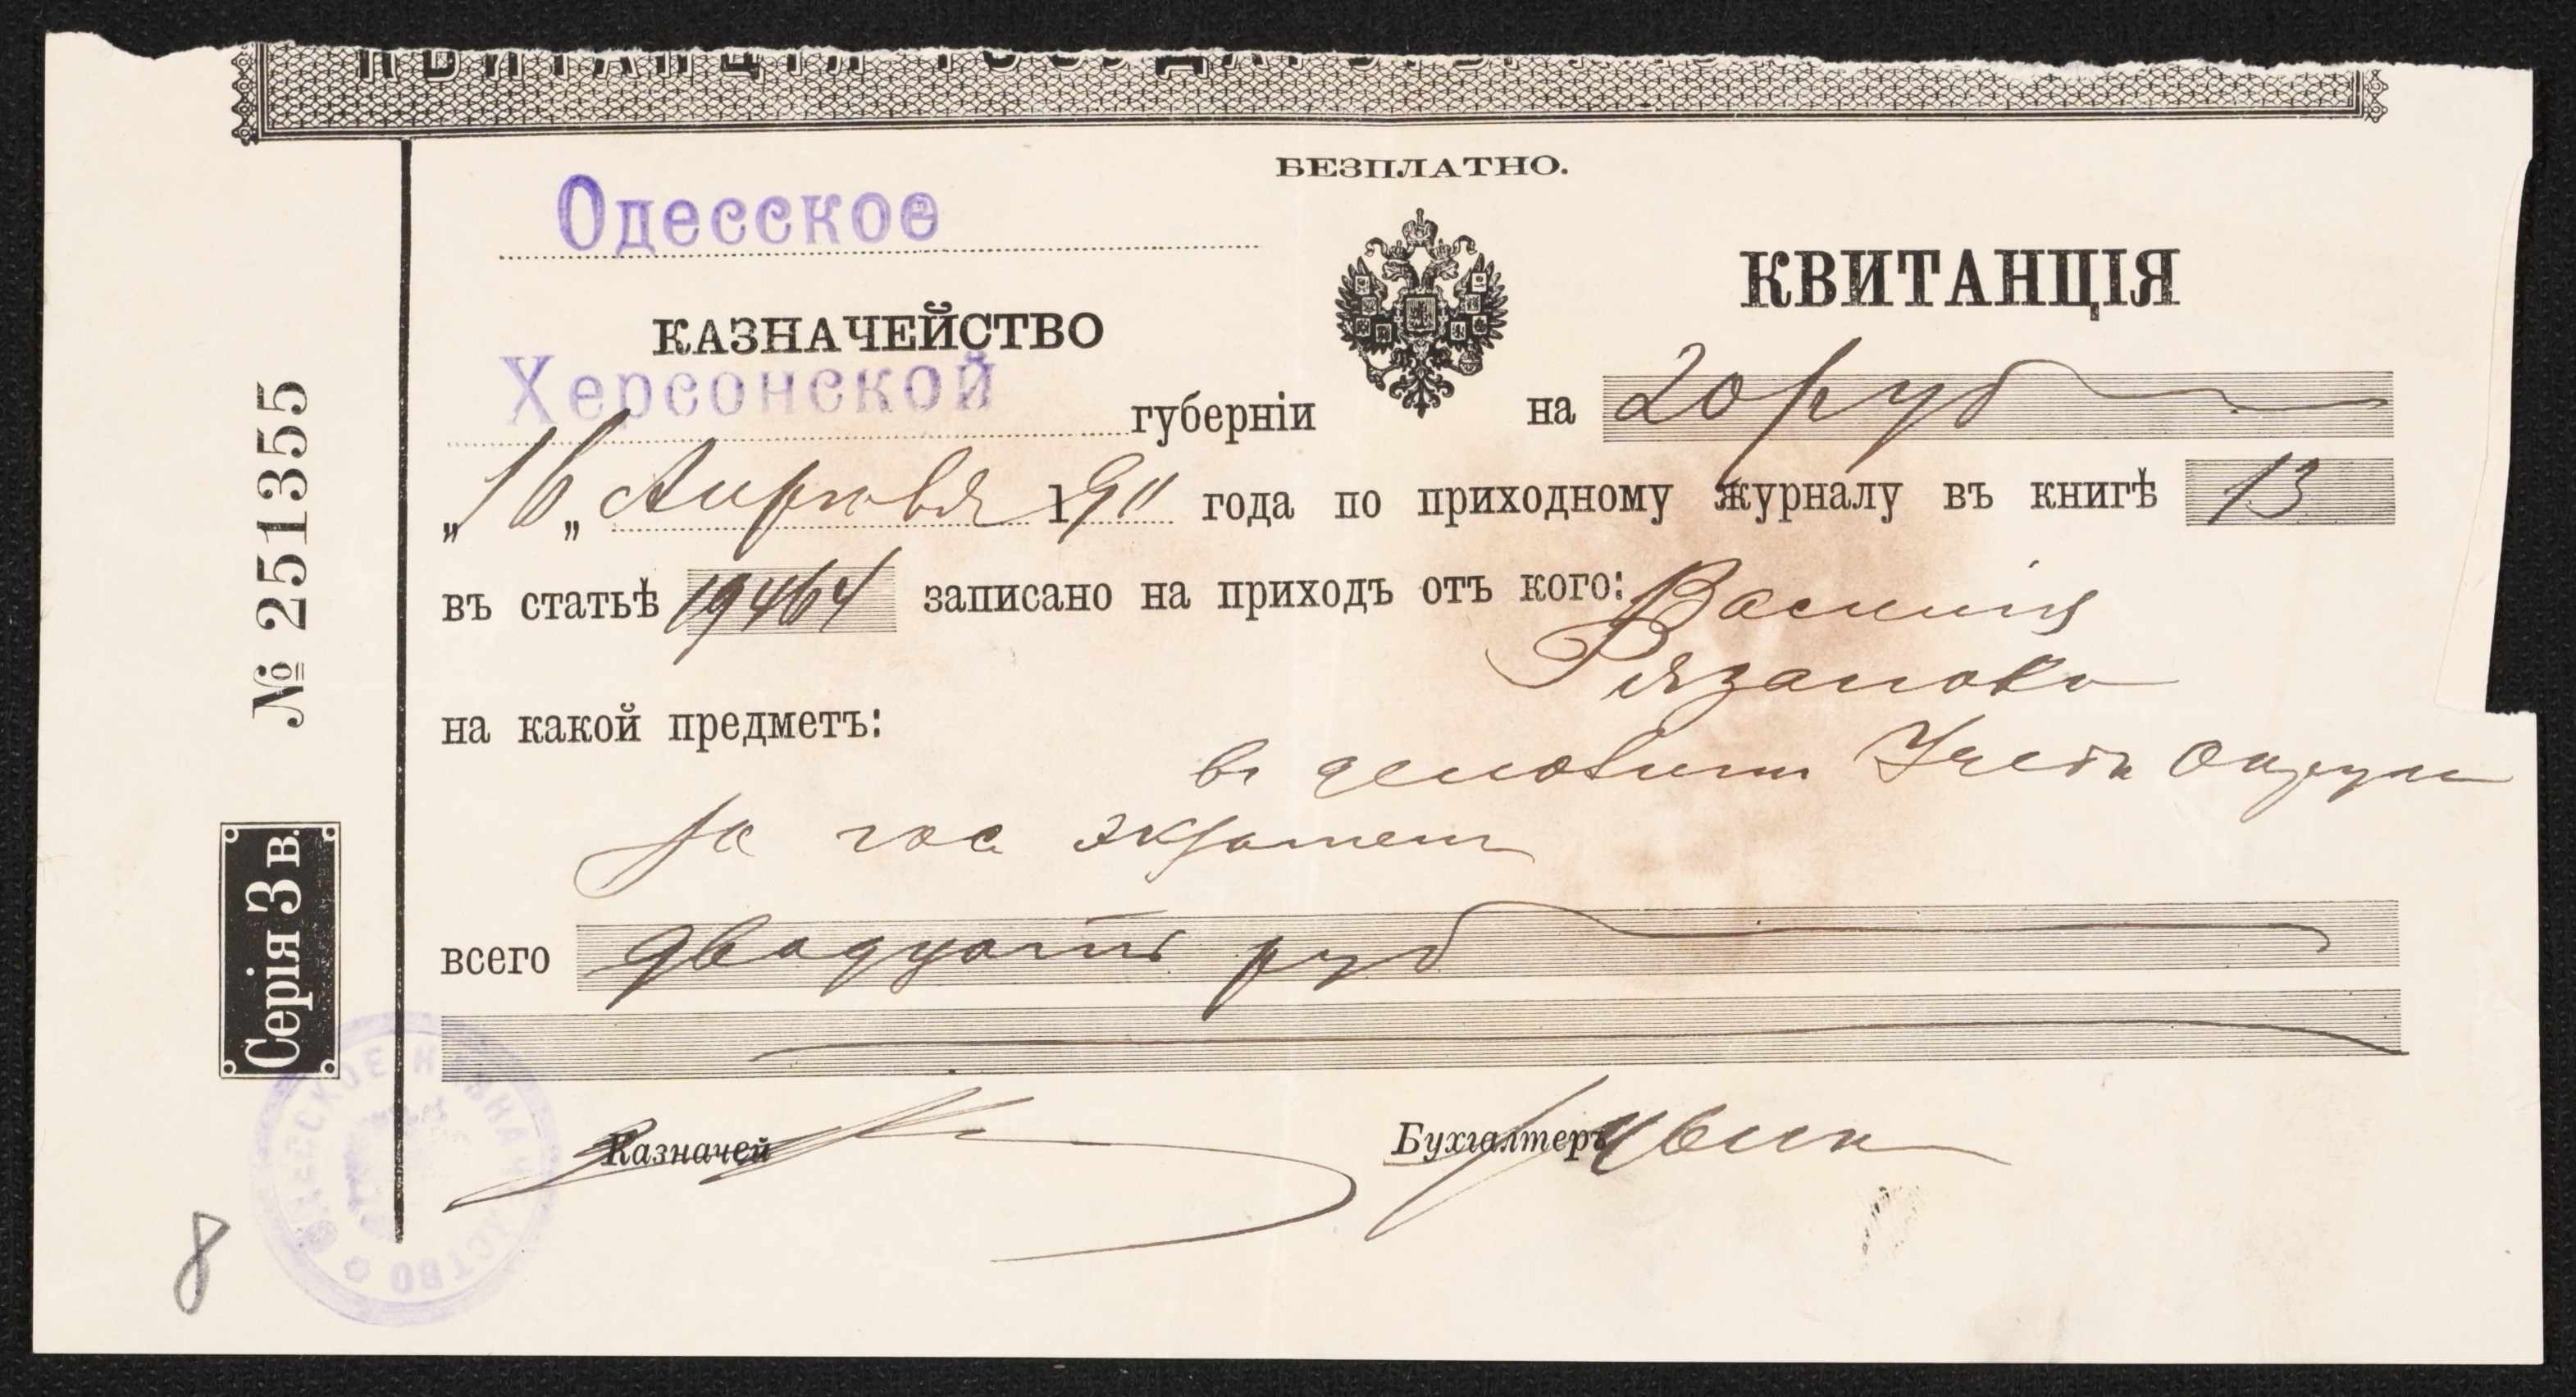 КВИТАНЦІЯ
БЕЗПЛАТНО.
Одесское
КАЗНАЧЕЙСТВО
Херсонской губерніи
КВИТАНЦІЯ
на 20 руб
„16„ Апреля 1911 года по приходному журналу въ книгѣ 13
въ статьѣ 19464 записано на приходъ отъ кого: Василія
Рязанова
на какой предметъ:
в Учебн Округа
за гос экзамен
всего двадцать руб
Казначей
Бухгалтеръ
№ 251355
Серія 3 в.
ОДЕССКОЕ КАЗНАЧЕЙСТВО
8